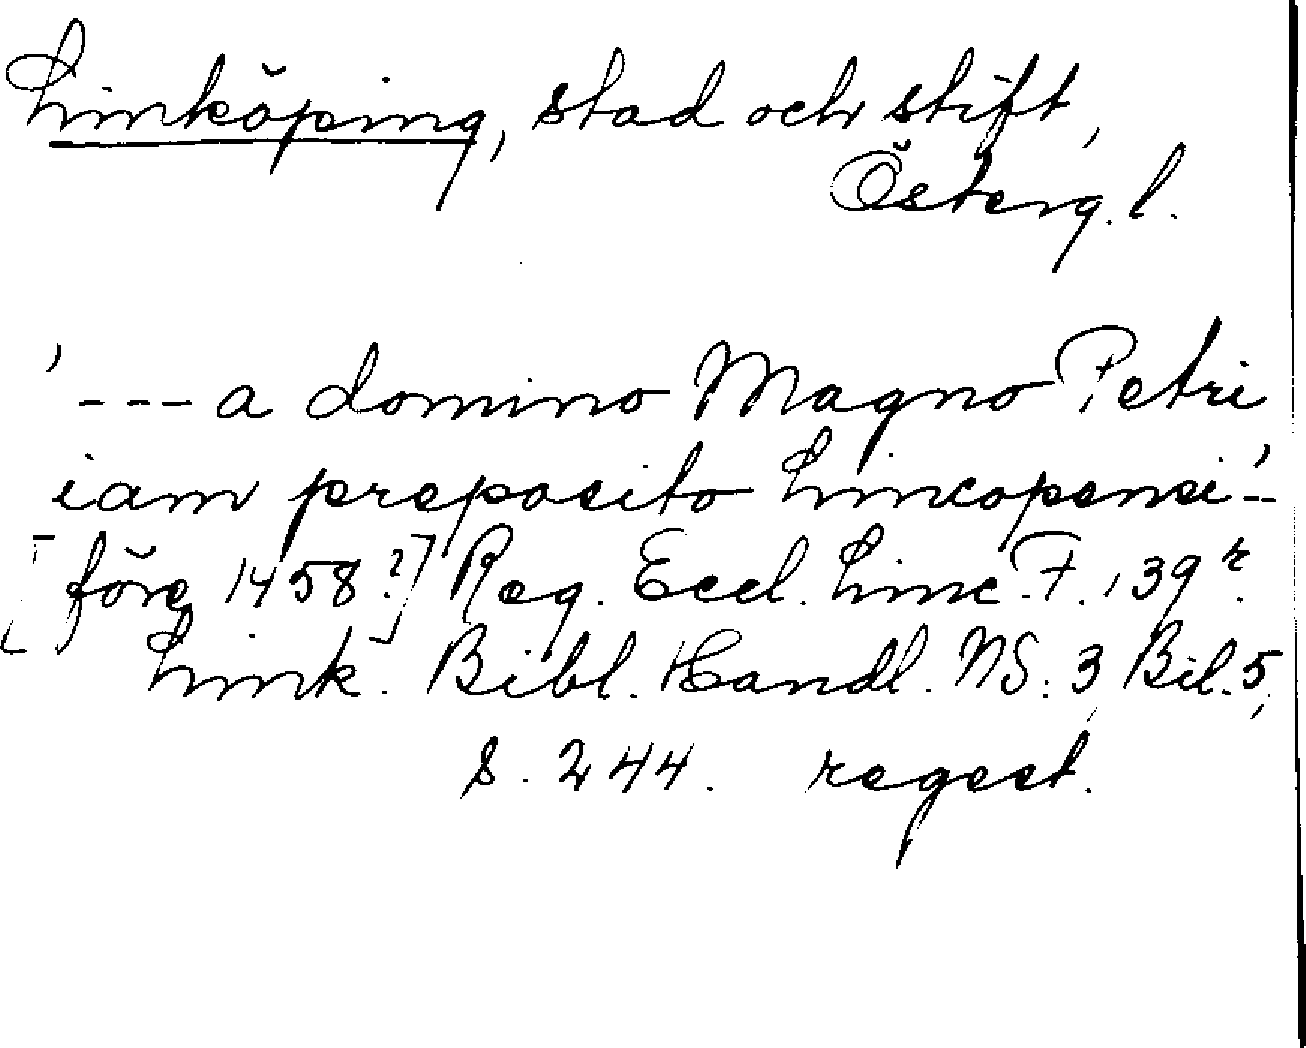 Linköping, stad och stift,
Österg. l.
' --- a domino Magno Petri
iam preposito Lincopensi' --
[före 1458?] Reg. Eccl. Linc. F., 39r.
Link. Bibl. Handl. NS: 3, Bil. 5,
s. 244. regest.